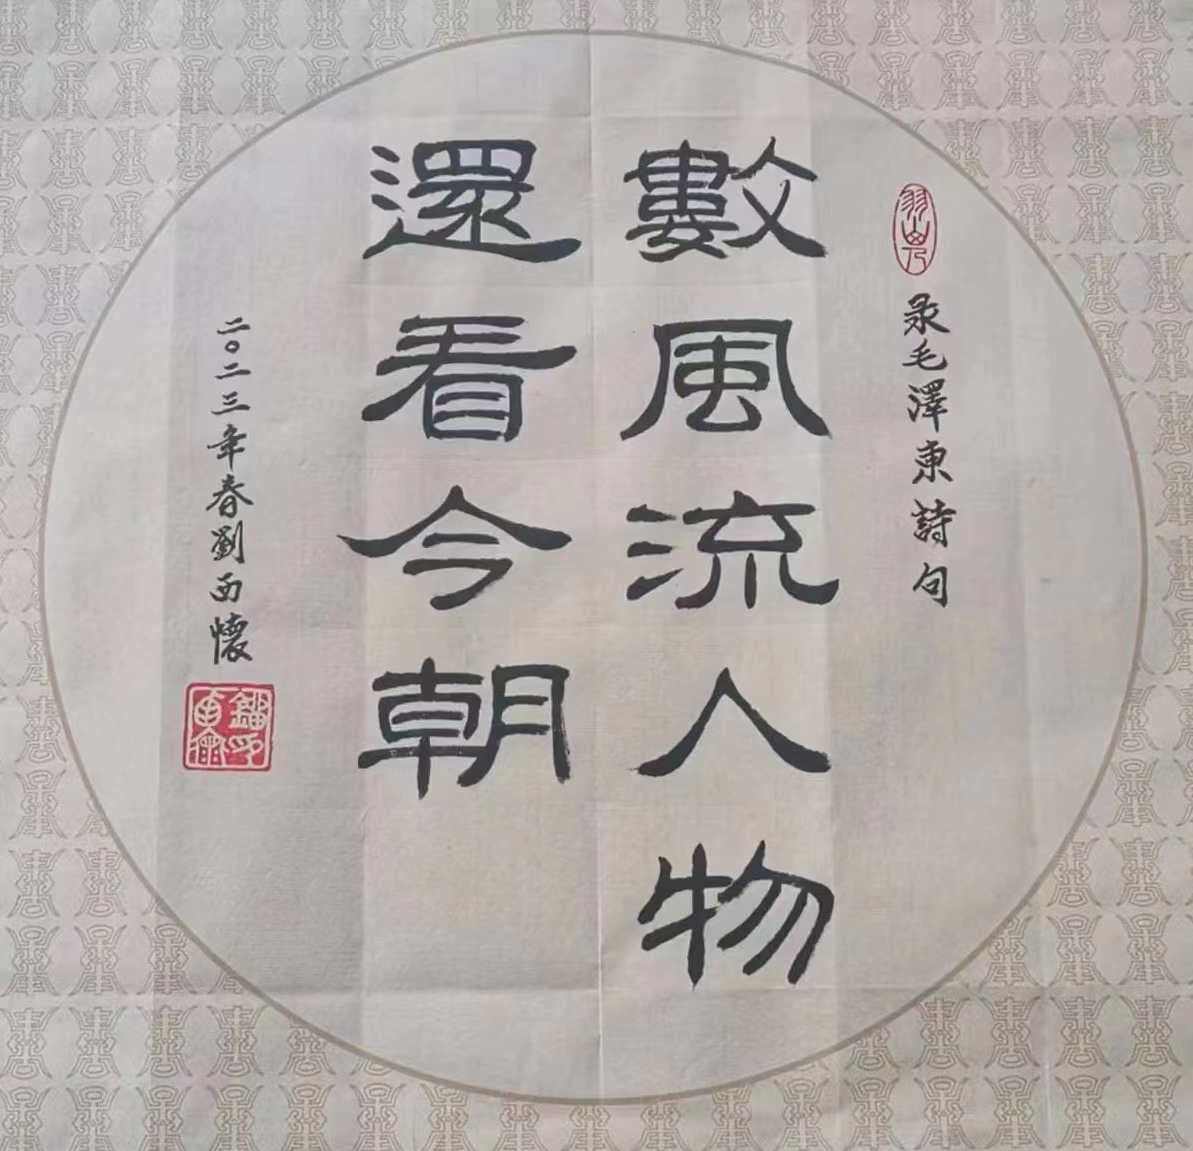 录毛澤東詩句
數風流人物
還看今朝
二〇二三年春劉西懷